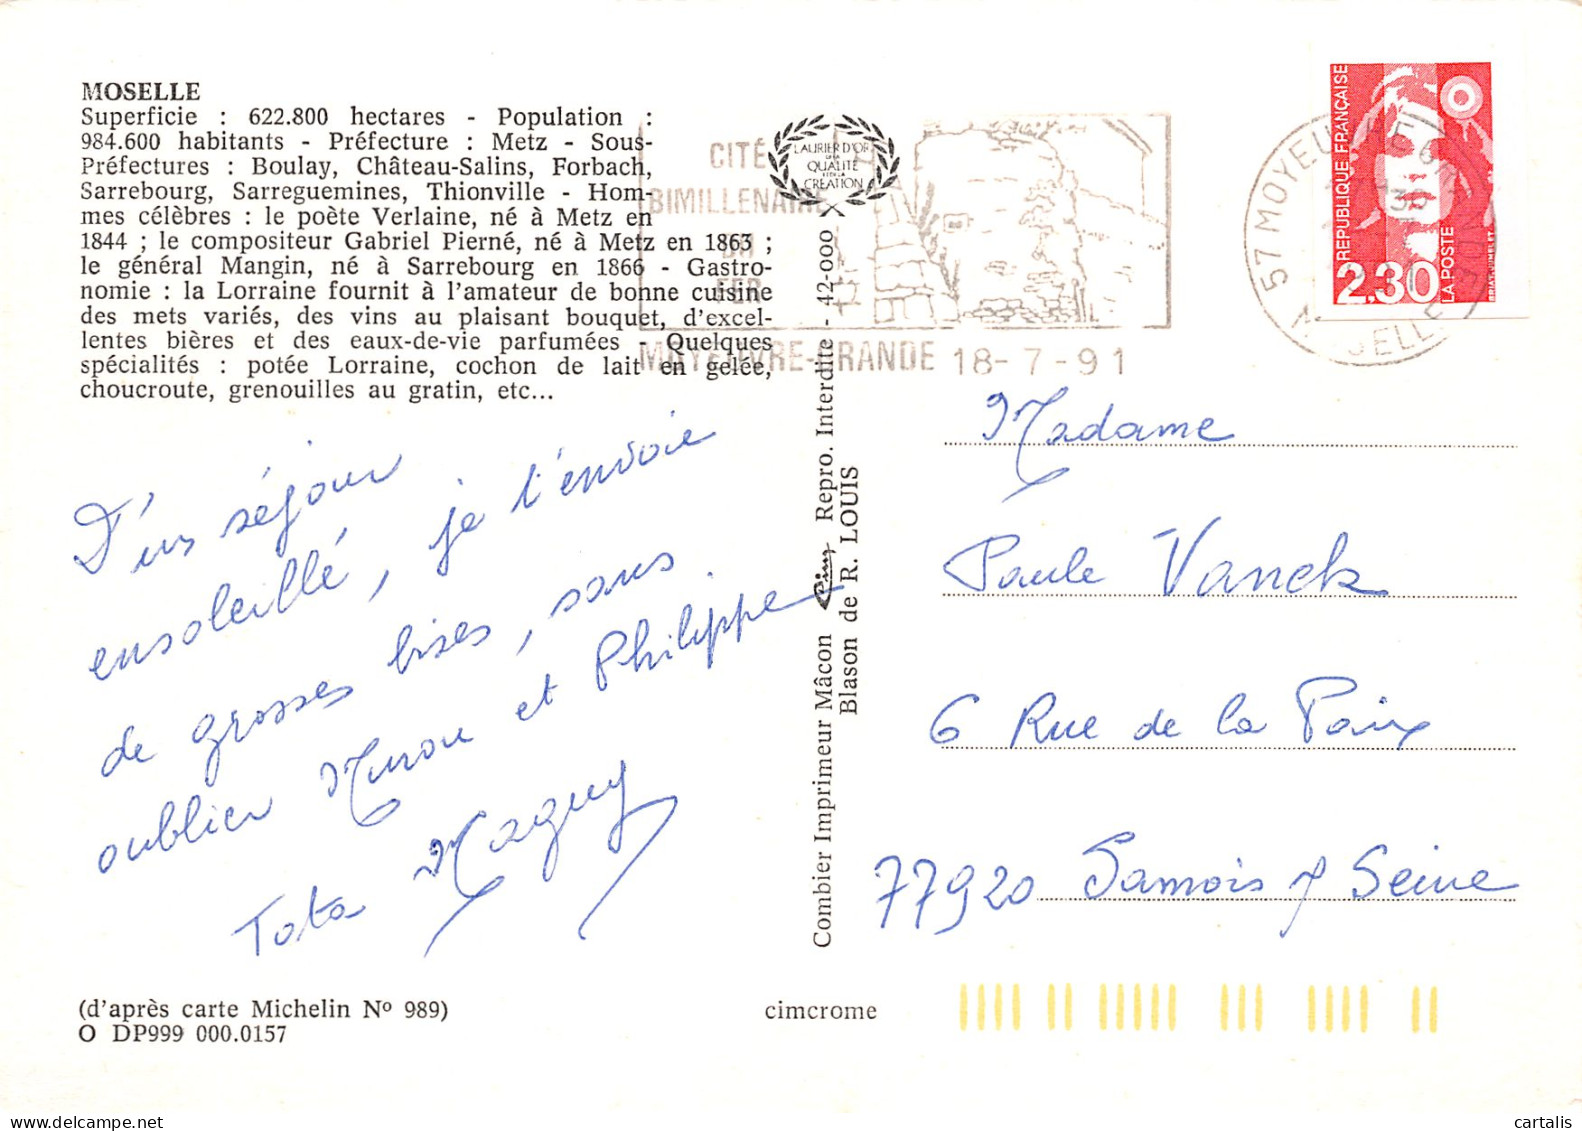 MOSELLE
Superficie : 622.800 hectares - Population :
984.600 habitants - Préfecture : Metz - Sous-
Préfectures : Boulay, Château-Salins, Forbach,
Sarrebourg, Sarreguemines, Thionville - Hom-
mes célèbres : le poète Verlaine, né à Metz en
1844 ; le compositeur Gabriel Pierné, né à Metz en 1863 ;
le général Mangin, né à Sarrebourg en 1866 - Gastro-
nomie : la Lorraine fournit à l'amateur de bonne cuisine
des mets variés, des vins au plaisant bouquet, d'excel-
lentes bières et des eaux-de-vie parfumées - Quelques
spécialités : potée Lorraine, cochon de lait en gelée,
choucroute, grenouilles au gratin, etc...
CITÉ
BIMILLENAIRE
DU
FER
MOYEUVRE-GRANDE 18-7-91
LAURIER D'OR
DE LA
QUALITÉ
ET DE LA
CRÉATION
57 MOYEUVRE GRANDE
MOSELLE
REPUBLIQUE FRANÇAISE
2.30
LA POSTE
BRIAT. JUMELET
D'un séjour
ensoleillé, je t'envoie
de grosses bises, sans
oublier et Philippe
Tata Maguy
Combier Imprimeur Mâcon Cim Repro. Interdite - 42-000
Blason de R. LOUIS
Madame
Paule Vanek
6 Rue de la Paix
77920 Samois s/ Seine
(d'après carte Michelin Nº 989)
O DP999 000.0157
cimcrome
cartalis